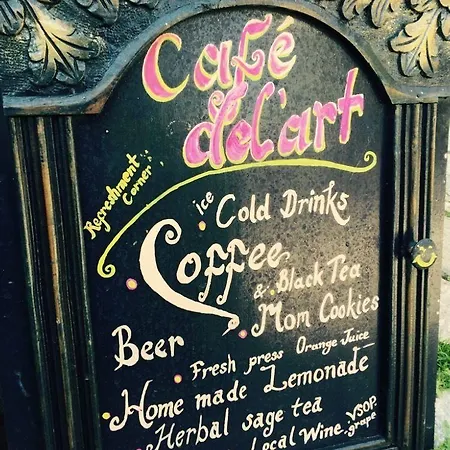 Café
del'art
Refreshment
Corner
ice Cold Drinks
Coffee
& Black Tea
Mom Cookies
Beer
Fresh press Orange Juice
Home made Lemonade
Herbal sage tea
Local Wine
VSOP.
grape